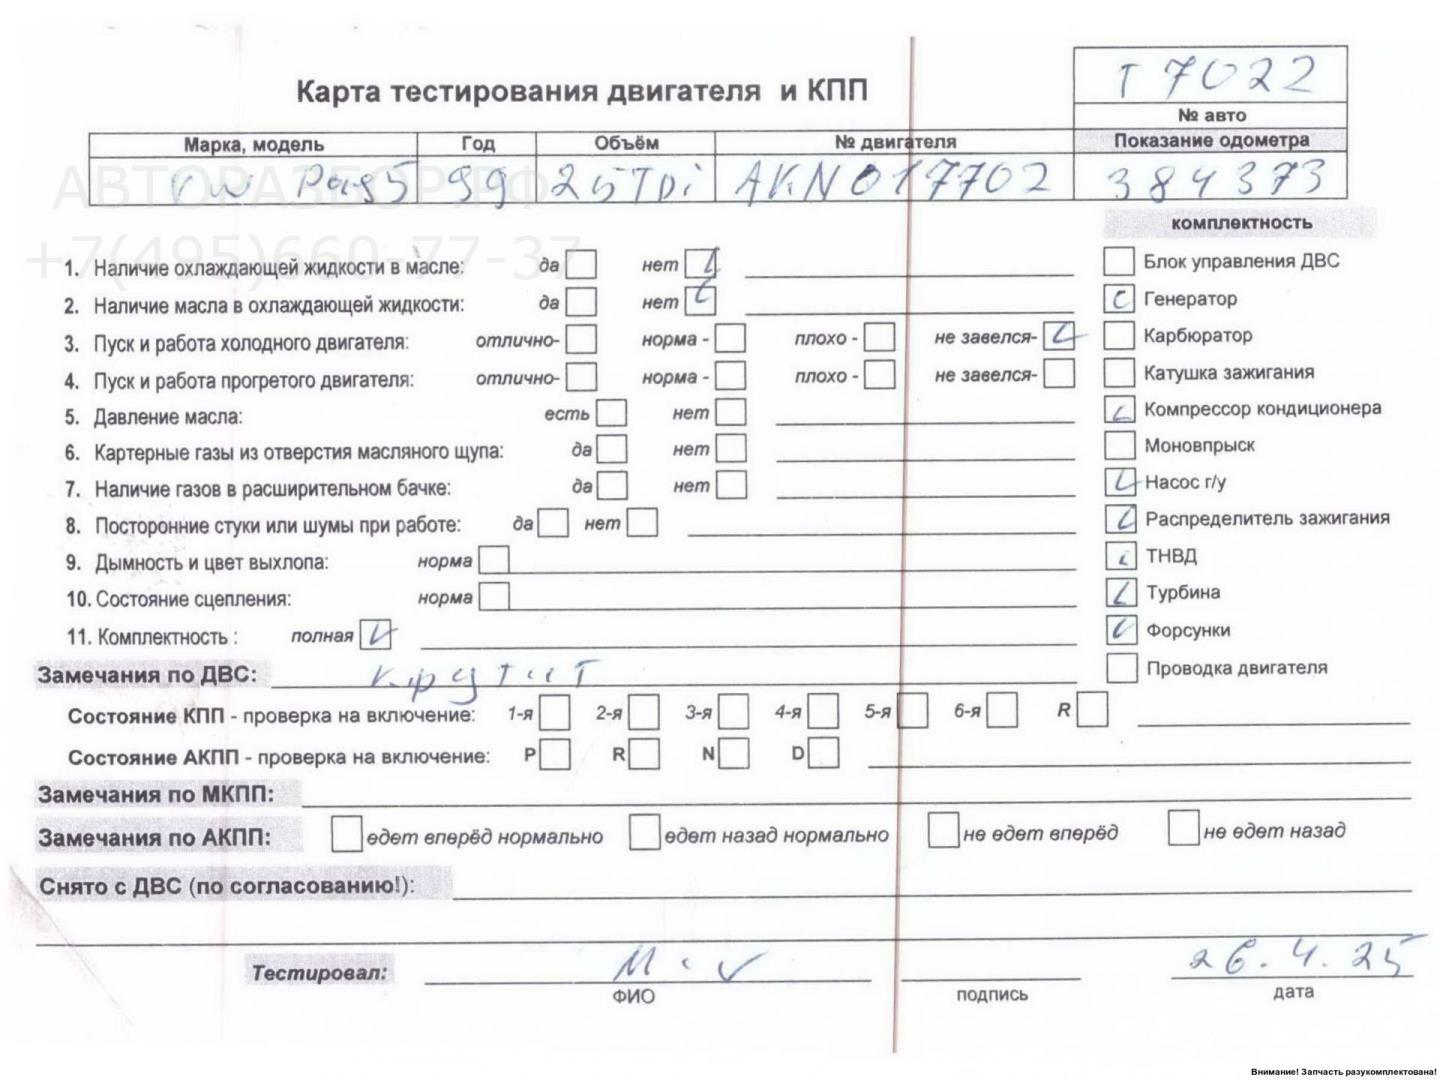 T 7022
Карта тестирования двигателя и КПП
№ авто
Марка, модель Год Объём № двигателя Показание одометра
VW Pas5 99 25TDi AKN017702 384373
АВТОРАЗБОР.РФ
+7(495)660-77-37
комплектность
1. Наличие охлаждающей жидкости в масле: да нет
Блок управления ДВС
2. Наличие масла в охлаждающей жидкости: да нет
Генератор
3. Пуск и работа холодного двигателя: отлично- норма - плохо - не завелся-
Карбюратор
4. Пуск и работа прогретого двигателя: отлично- норма - плохо - не завелся-
Катушка зажигания
5. Давление масла: есть нет
Компрессор кондиционера
6. Картерные газы из отверстия масляного щупа: да нет
Моновпрыск
7. Наличие газов в расширительном бачке: да нет
Насос г/у
8. Посторонние стуки или шумы при работе: да нет
Распределитель зажигания
9. Дымность и цвет выхлопа: норма
ТНВД
10. Состояние сцепления: норма
Турбина
11. Комплектность : полная
Форсунки
Замечания по ДВС: крутит
Проводка двигателя
Состояние КПП - проверка на включение: 1-я 2-я 3-я 4-я 5-я 6-я R
Состояние АКПП - проверка на включение: P R N D
Замечания по МКПП:
Замечания по АКПП: едет вперёд нормально едет назад нормально не едет вперёд не едет назад
Снято с ДВС (по согласованию!):
Тестировал: 26.4.25
ФИО подпись дата
Внимание! Запчасть разукомплектована!